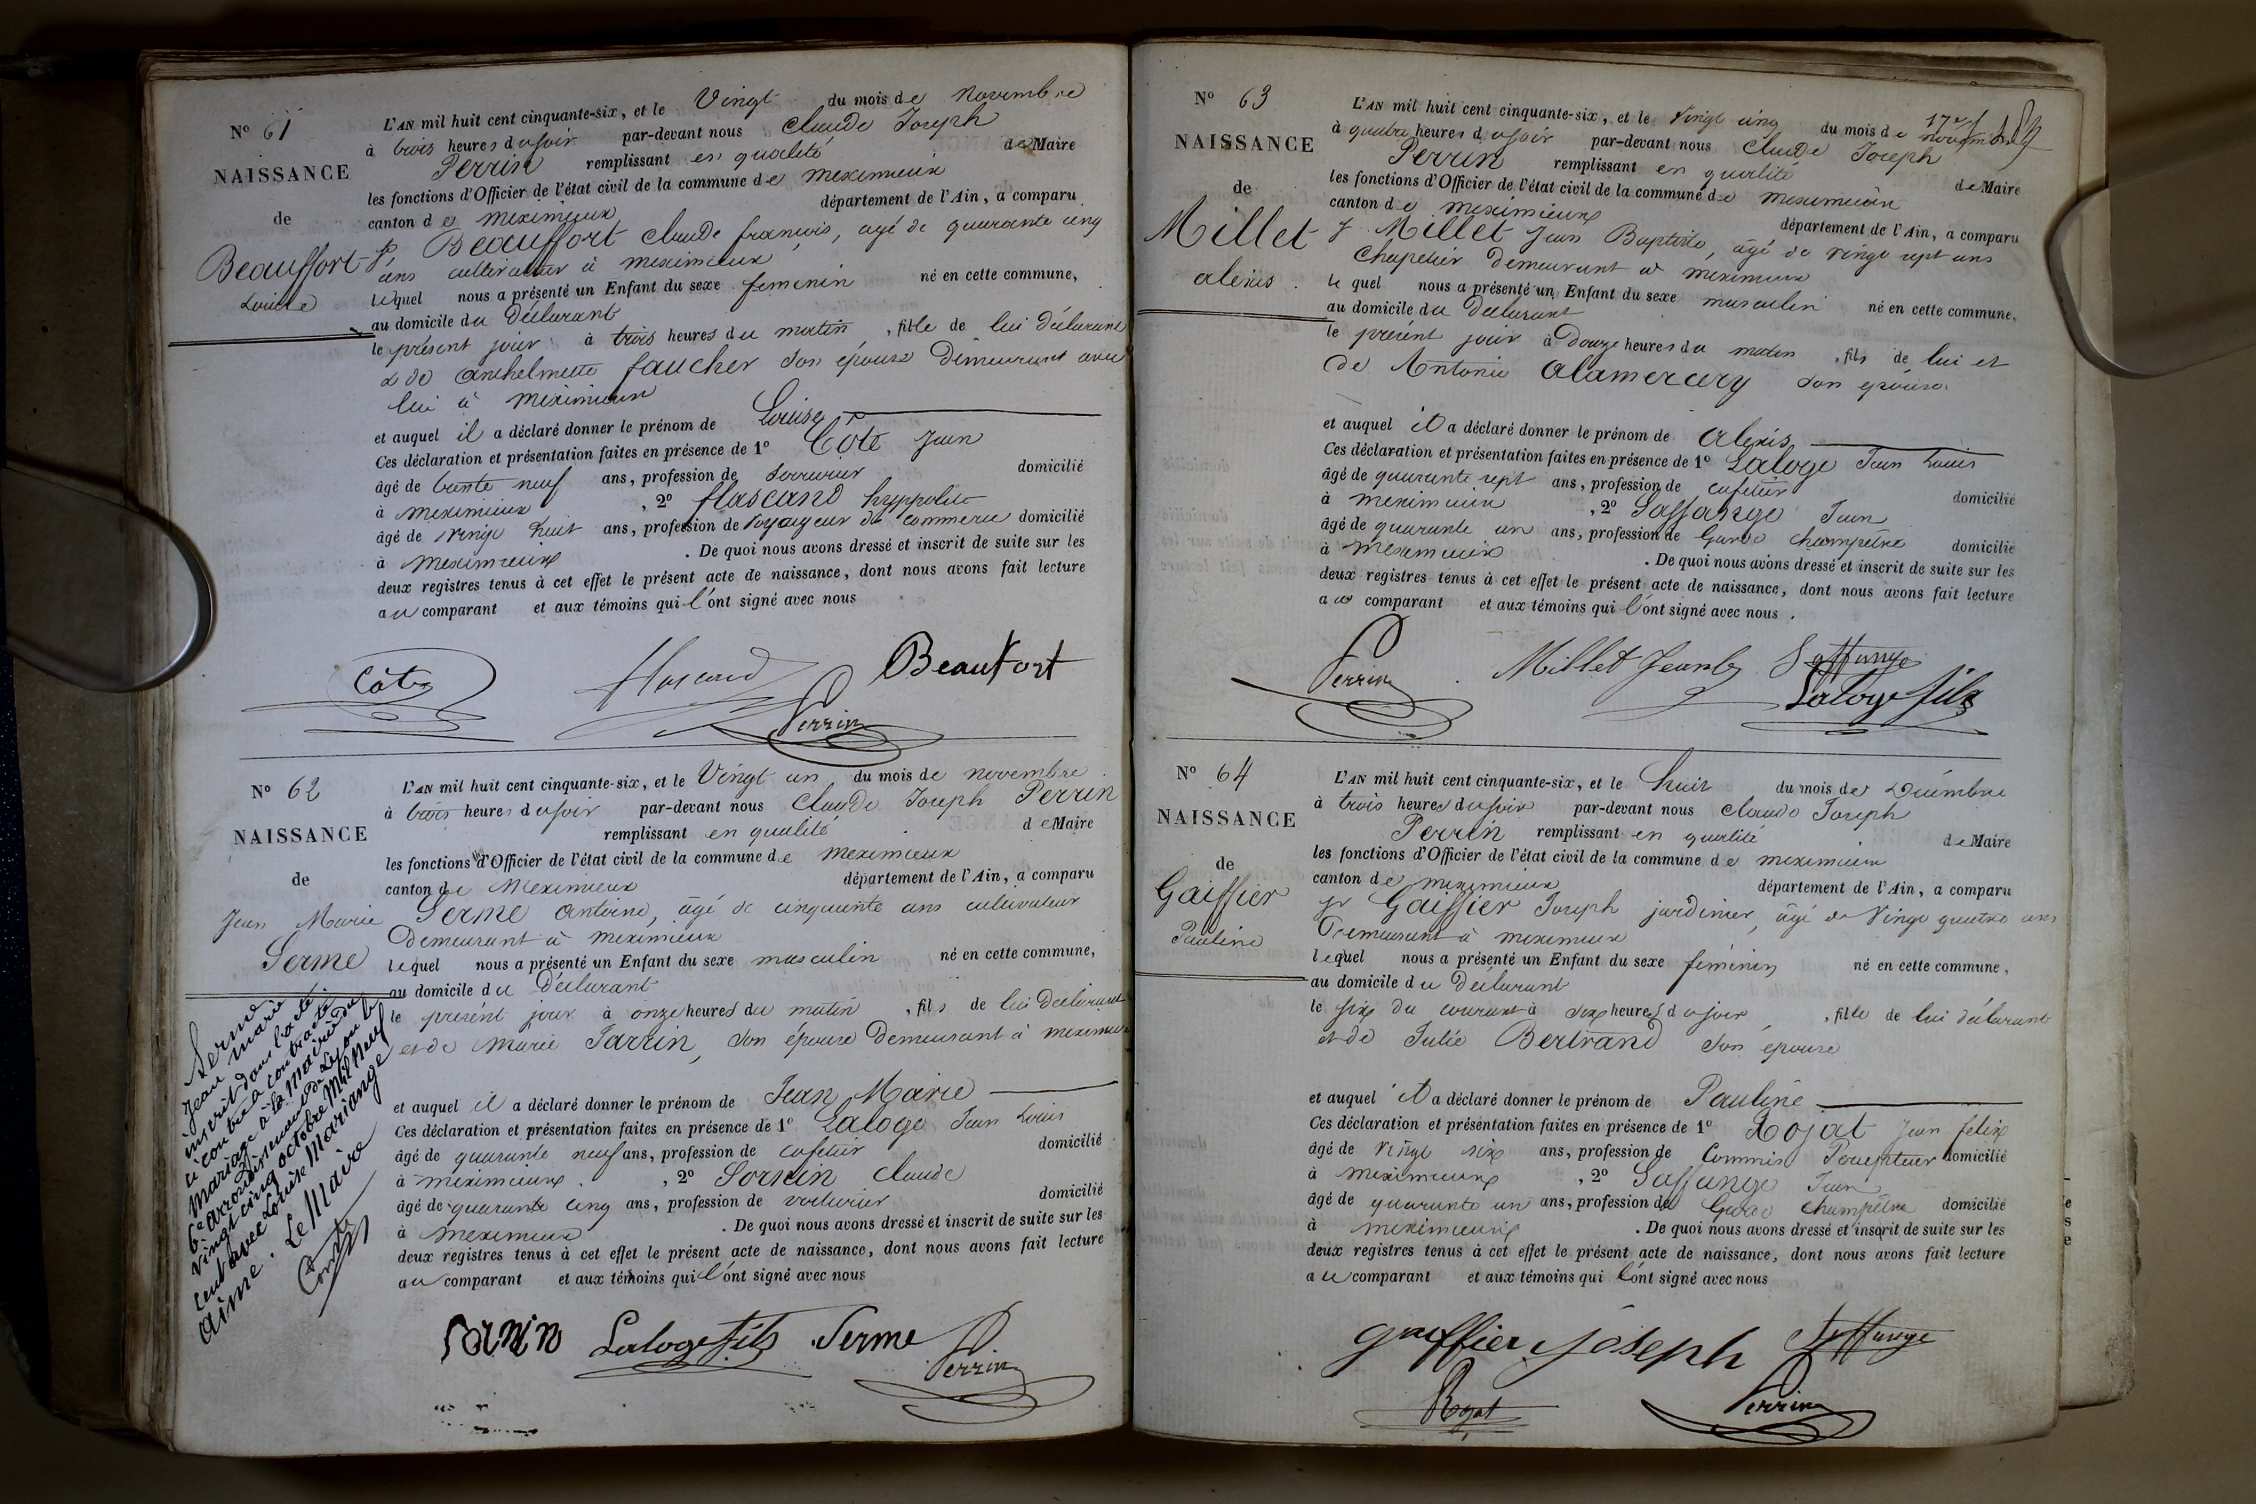 N° 61
NAISSANCE
de
Beauffort
Louise
L'AN mil huit cent cinquante-six, et le Vingt du mois de novembre
à trois heures du soir par-devant nous Claude Joseph
Perrin remplissant en qualité de Maire
les fonctions d'Officier de l'état civil de la commune de meximieux
canton de meximieux département de l'Ain, a comparu
Beauffort Claude françois, agé de quarante cinq
ans cultivateur à meximieux
lequel nous a présenté un Enfant du sexe feminin né en cette commune,
au domicile du Déclarant
le présent jour à trois heures du matin, fille de lui déclarant
& de anthelmette faucher son épouse Demeurant avec
lui à meximieux
et auquel il a déclaré donner le prénom de Louise
Ces déclaration et présentation faites en présence de 1° Cote Jean
âgé de trente neuf ans, profession de serrurier domicilié
à meximieux, 2° flascand hyppolite
âgé de vingt huit ans, profession de voyageur de commerce domicilié
à meximieux. De quoi nous avons dressé et inscrit de suite sur les
deux registres tenus à cet effet le présent acte de naissance, dont nous avons fait lecture
au comparant et aux témoins qui l'ont signé avec nous
Côte flascand Beaufort
Perrin
N° 62
NAISSANCE
de
Jean Marie
Serme
L'AN mil huit cent cinquante-six, et le Vingt un du mois de novembre
à trois heures du soir par-devant nous Claude Joseph Perrin
remplissant en qualité de Maire
les fonctions d'Officier de l'état civil de la commune de meximieux
canton de Meximieux département de l'Ain, a comparu
Serme antoine, âgé de cinquante ans cultivateur
Demeurant à meximieux
lequel nous a présenté un Enfant du sexe masculin né en cette commune,
au domicile du Déclarant
le présent jour à onze heures du matin, fils de lui Déclarant
et de Marie Jarrin, son épouse Demeurant à meximieux
et auquel il a déclaré donner le prénom de Jean Marie
Ces déclaration et présentation faites en présence de 1° Laloge Jean Louis
âgé de quarante neuf ans, profession de cafetier domicilié
à meximieux, 2° Claude
âgé de quarante cinq ans, profession de voiturier domicilié
à meximieux. De quoi nous avons dressé et inscrit de suite sur les
deux registres tenus à cet effet le présent acte de naissance, dont nous avons fait lecture
au comparant et aux témoins qui l'ont signé avec nous
Laloge fils Serme
Perrin
Serme
Jean Marie
inscrit dans l'acte
ci contre a contracté
mariage à la Mairie du
6e arrondissement de Lyon le
vingt cinq octobre Mil neuf
cent avec Louise Mariange
Aimé. Le Maire
N° 63
NAISSANCE
de
Millet
alexis
L'AN mil huit cent cinquante-six, et le Vingt cinq du mois de novembre
à quatre heures du soir par-devant nous Claude Joseph
Perrin remplissant en qualité de Maire
les fonctions d'Officier de l'état civil de la commune de meximieux
canton de meximieux département de l'Ain, a comparu
Millet Jean Baptiste, âgé de vingt sept ans
Chapelier Demeurant à meximieux
lequel nous a présenté un Enfant du sexe masculin né en cette commune,
au domicile du Déclarant
le présent jour à Douze heures du matin, fils de lui et
de Antonie alamercery son épouse
et auquel il a déclaré donner le prénom de alexis
Ces déclaration et présentation faites en présence de 1° Laloge Jean Louis
âgé de quarante sept ans, profession de cafetier domicilié
à meximieux, 2° Saffange Jean
âgé de quarante un ans, profession de Garde champêtre domicilié
à meximieux. De quoi nous avons dressé et inscrit de suite sur les
deux registres tenus à cet effet le présent acte de naissance, dont nous avons fait lecture
au comparant et aux témoins qui l'ont signé avec nous.
Perrin Millet Jean Bte Saffange
Laloge fils
N° 64
NAISSANCE
de
Gaiffier
Pauline
L'AN mil huit cent cinquante-six, et le huit du mois de Décembre
à trois heures du soir par-devant nous Claude Joseph
Perrin remplissant en qualité de Maire
les fonctions d'Officier de l'état civil de la commune de meximieux
canton de meximieux département de l'Ain, a comparu
Gaiffier Joseph jardinier, âgé de Vingt quatre ans
Demeurant à meximieux
lequel nous a présenté un Enfant du sexe féminin né en cette commune,
au domicile du Déclarant
le six du courant à six heures du soir, fille de lui déclarant
et de Julie Bertrand son épouse
et auquel il a déclaré donner le prénom de Pauline
Ces déclaration et présentation faites en présence de 1° Rojat Jean félix
âgé de vingt six ans, profession de Commis Percepteur domicilié
à meximieux, 2° Saffange Jean
âgé de quarante un ans, profession de Garde champêtre domicilié
à meximieux. De quoi nous avons dressé et inscrit de suite sur les
deux registres tenus à cet effet le présent acte de naissance, dont nous avons fait lecture
au comparant et aux témoins qui l'ont signé avec nous
gaiffier joseph Saffange
Rojat Perrin